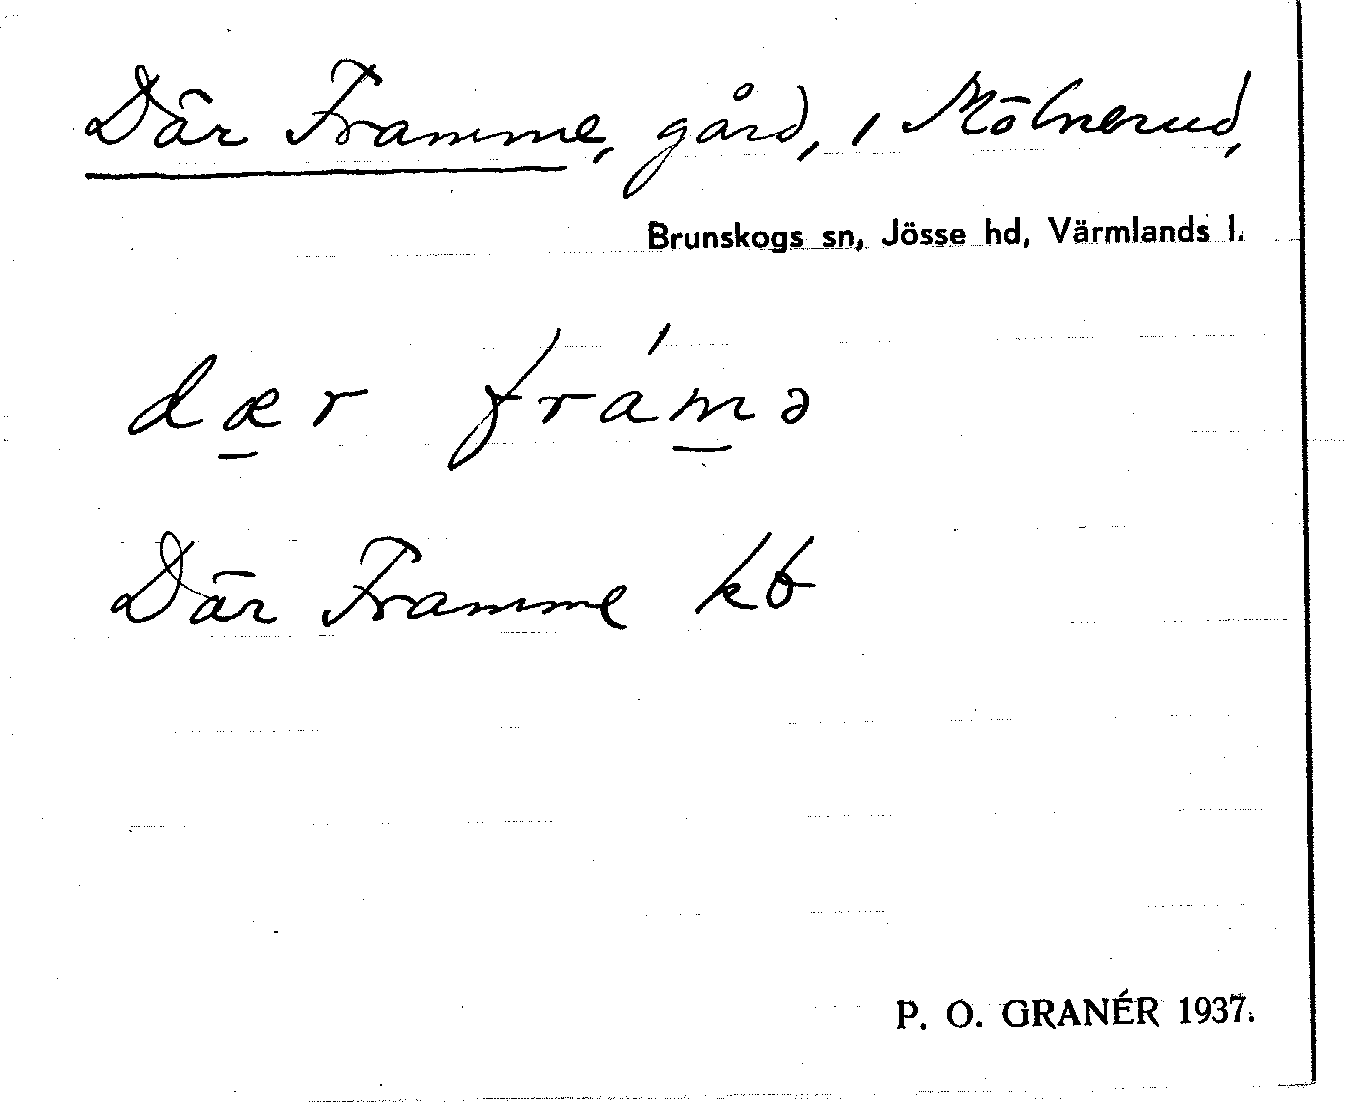 Där Framme, gård, i Mölnerud,
Brunskogs sn, Jösse hd, Värmlands l.
dær framə
Där Framme kb
P. O. GRANÉR 1937.